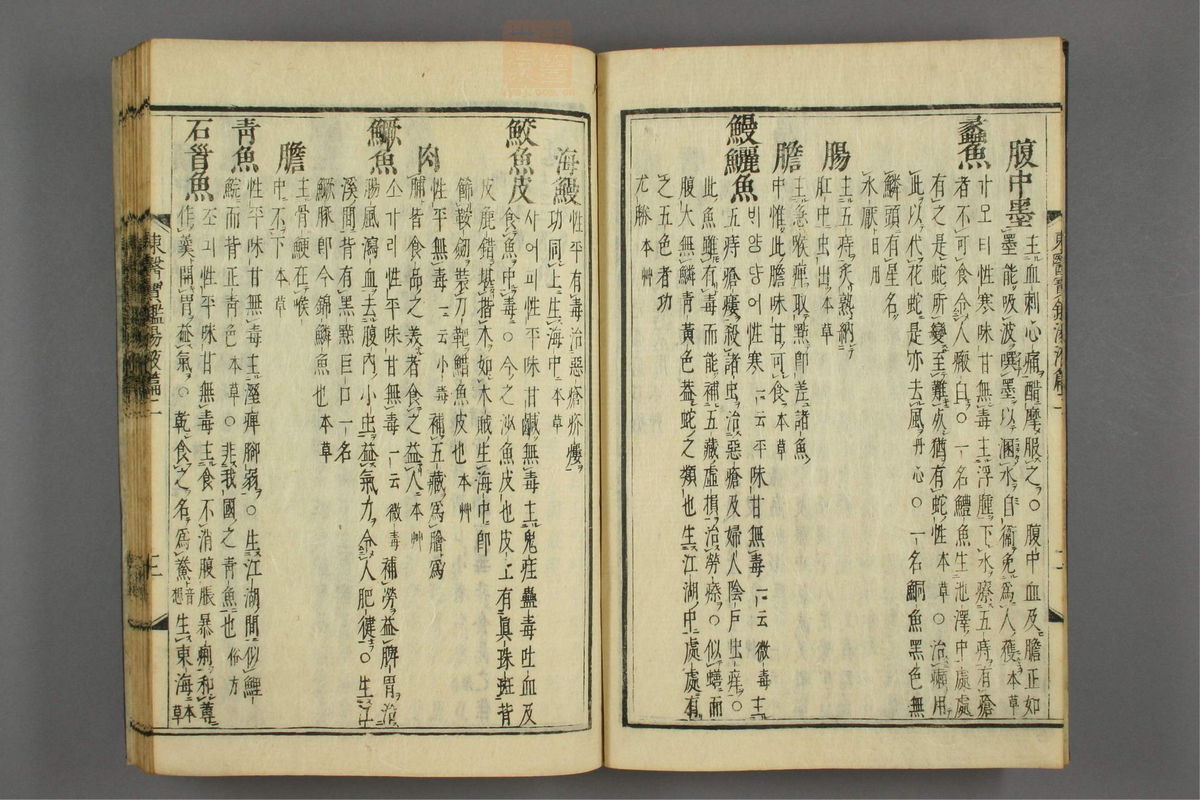 腹中墨 主血刺心痛醋摩服之○腹中血及膽正如
墨能吸波噀墨以溷水自衛免爲人獲 本草
蠡魚 가모티性寒味甘無毒主浮腫下水療五痔有瘡
者不可食令人瘢白○一名鱧魚生池澤中處處
有之是蛇所變至難死猶有蛇性 本草○治癩用
此以代花蛇是亦去風 丹心○一名鮦魚黑色無
鱗頭有星名
水厭 日用
腸 主五痔炙熟納
肛中虫出 本草
膽 主急喉痺取點卽差諸魚
中惟此膽味甘可食 本草
鰻鱺魚 비얌당어性寒 一云平味甘無毒 一云微毒主
五痔瘡瘻殺諸虫治惡瘡及婦人陰戶虫痒○
此魚雖有毒而能補五藏虛損治勞瘵○似鱔而
腹大無鱗靑黃色蓋蛇之類也生江湖中處處有
之五色者功
尤勝 本艸
東醫寶鑑湯液篇二
海鰻 性平有毒治惡瘡疥瘻
功同上生海中 本草
鮫魚皮 사어피性平味甘鹹無毒主鬼疰蠱毒吐血及
食魚中毒○今之沙魚皮也皮上有眞珠斑背
皮鹿錯堪揩木如木賊生海中卽
飾鞍劒裝刀靶䱜魚皮也 本艸
肉 性平無毒 一云小毒補五藏爲膾爲
脯皆食品之美者食之益人 本艸
鱖魚 소가리性平味甘無毒 一云微毒補勞益脾胃治
腸風瀉血去腹內小虫益氣力令人肥健○生江
溪間背有黑點巨口一名
鱖豚卽今錦鱗魚也 本草
膽 主骨鯁在喉
中不下 本草
靑魚 性平味甘無毒主濕痺脚弱○生江湖間似鯉
鯇而背正靑色 本草○非我國之靑魚也 俗方
石首魚 조긔性平味甘無毒主食不消腹脹暴痢和蓴
作羹開胃益氣○乾食之名爲鯗 音想生東海 本草
東醫寶鑑湯液篇二
三